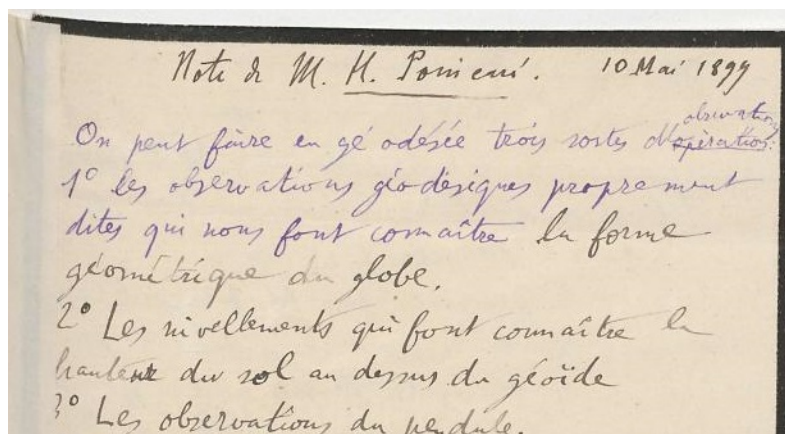 Note de M. H. Poincaré. 10 Mai 1899
observations
On peut faire en géodésée trois sortes d'opération:
1° les observations géodésiques proprement
dites qui nous font connaître la forme
géométrique du globe.
2° Les nivellements qui font connaître la
hauteur du sol au dessus du géoïde
3° Les observations du pendule.